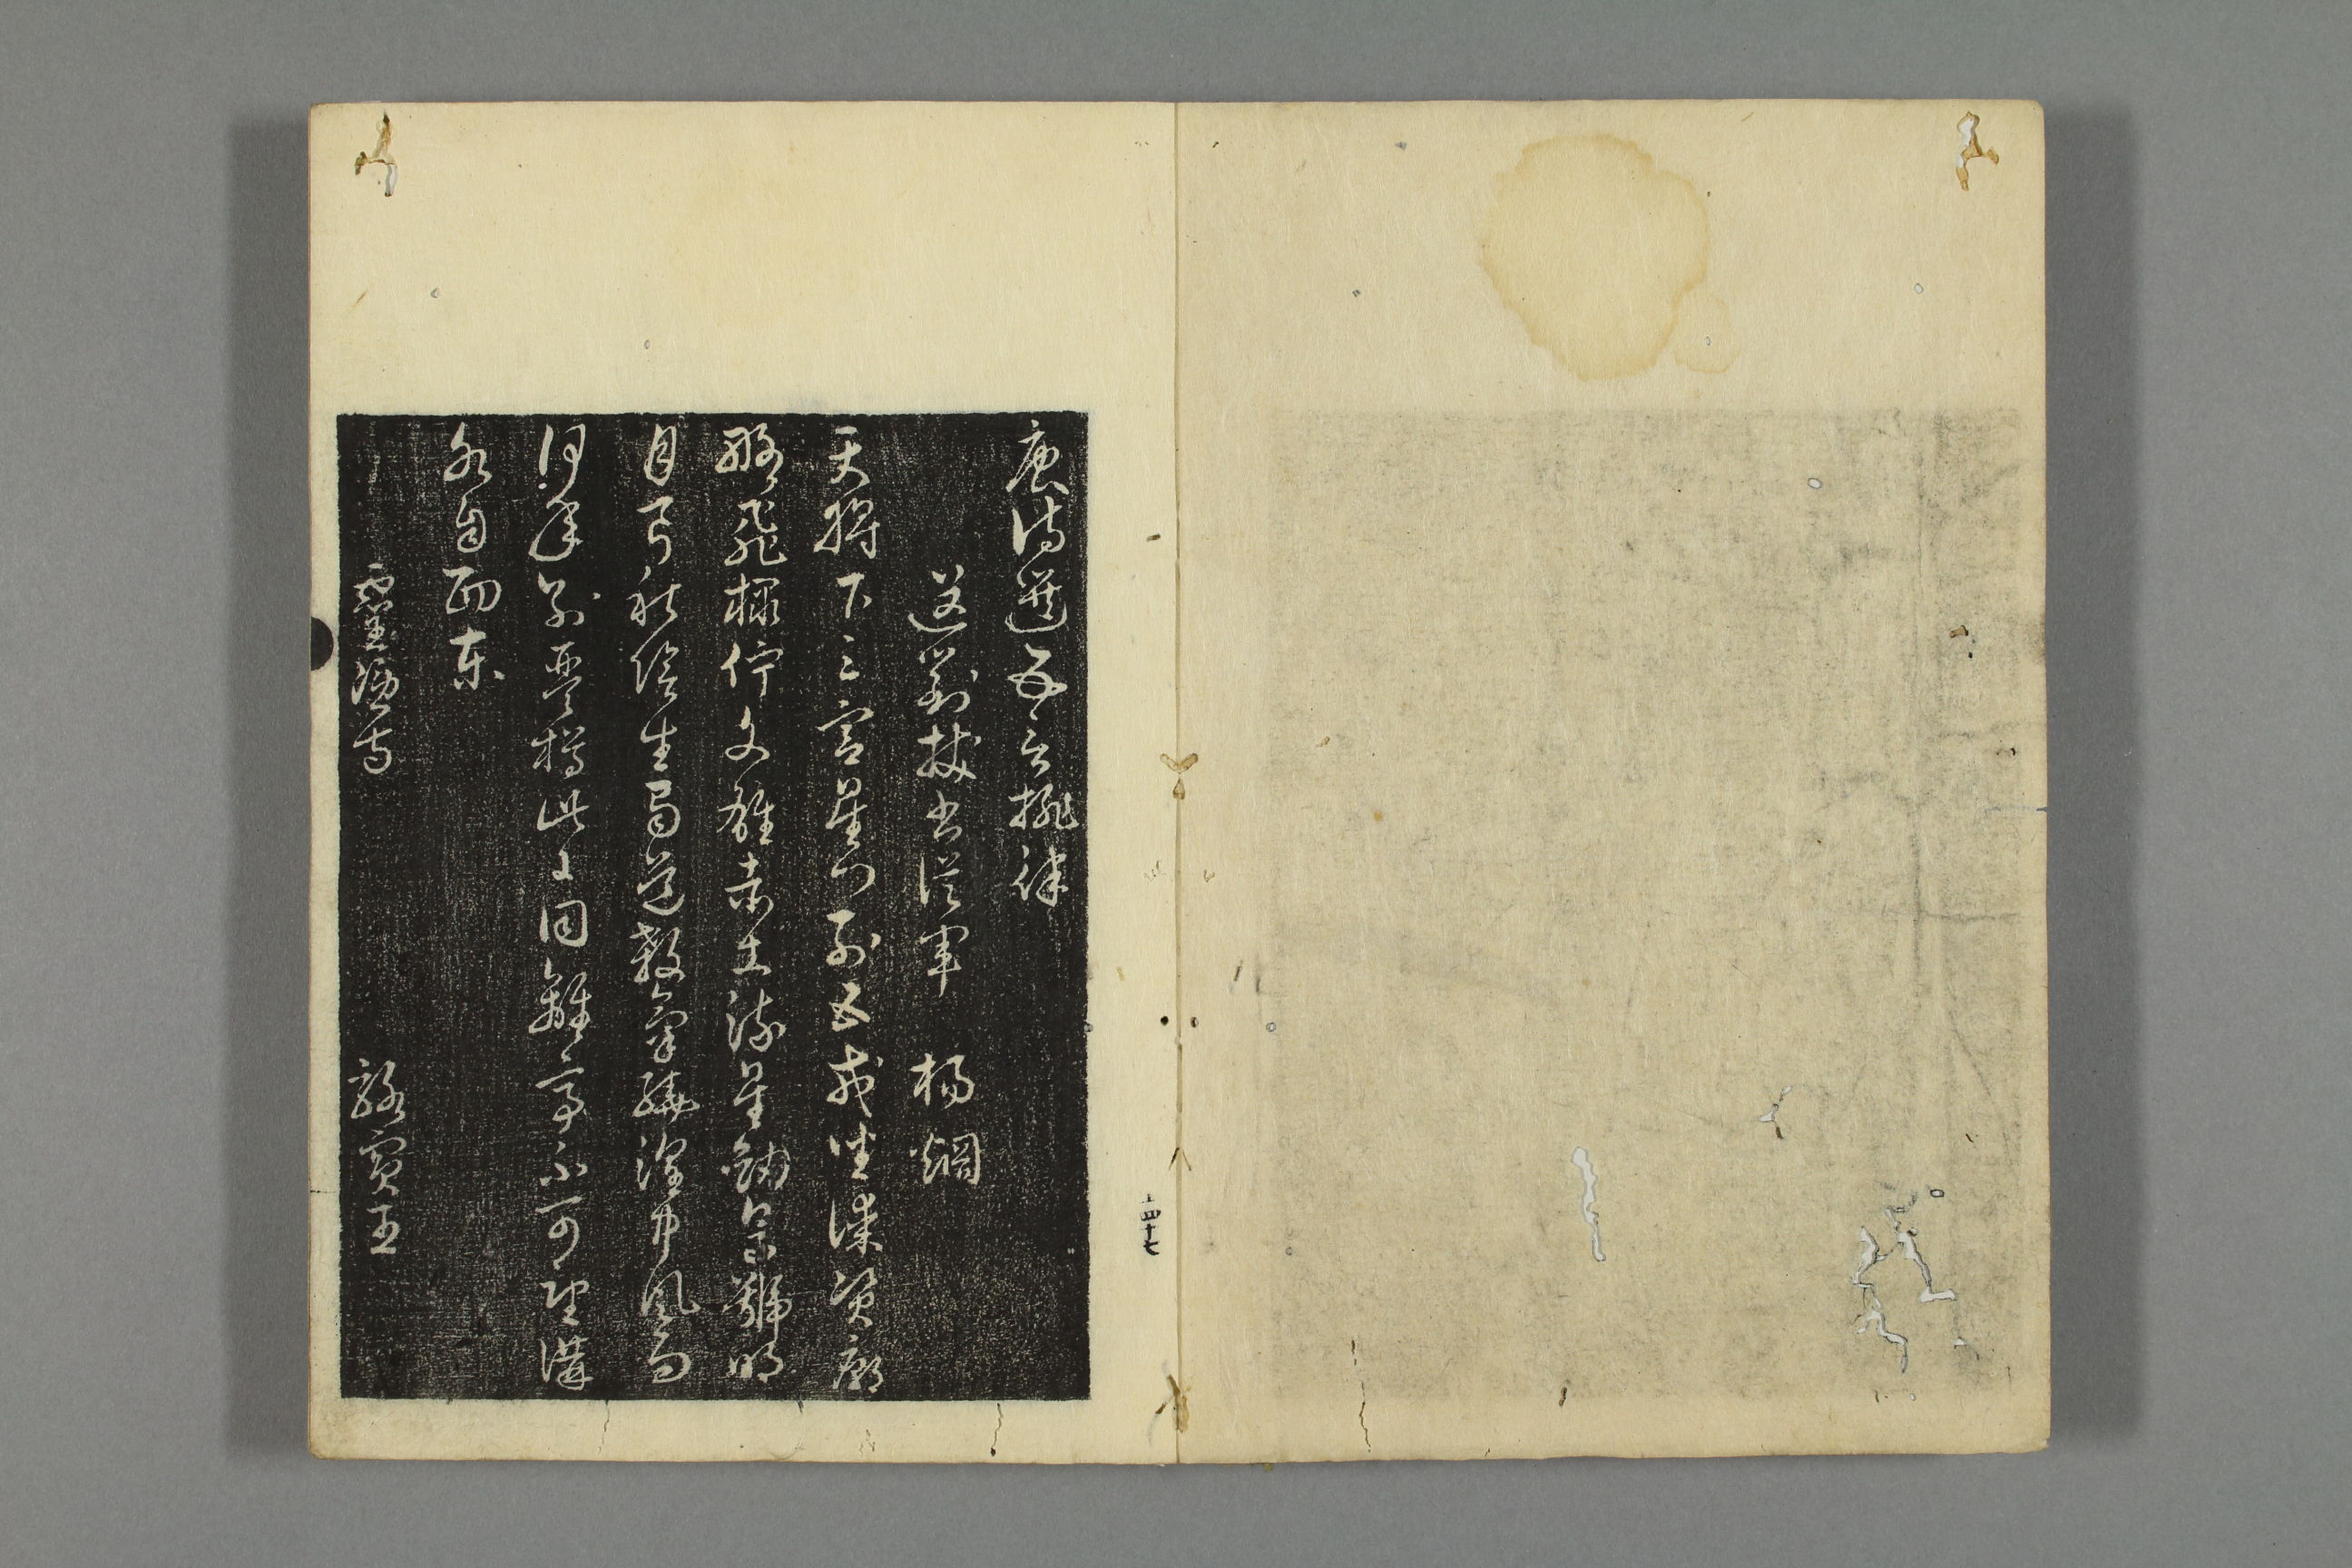 唐詩選五言排律
送劉校書從軍　楊炯
天將下三宮星門列五戎坐謀資廟
略飛檄佇文雄赤土流星劍烏號明
月弓秋陰生蜀道殺氣繞湟中風雨
何年別琴樽此日同離亭不可望溝
水自西東
靈隱寺　駱賓王
四十七